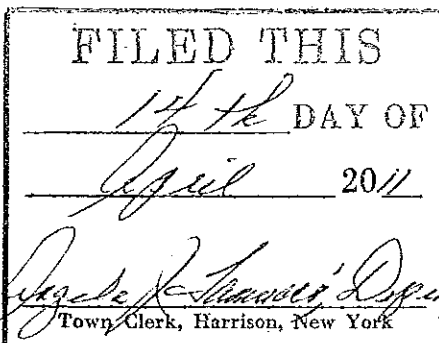 FILED THIS
14th DAY OF
April 2011
Angela
Town Clerk, Harrison, New York